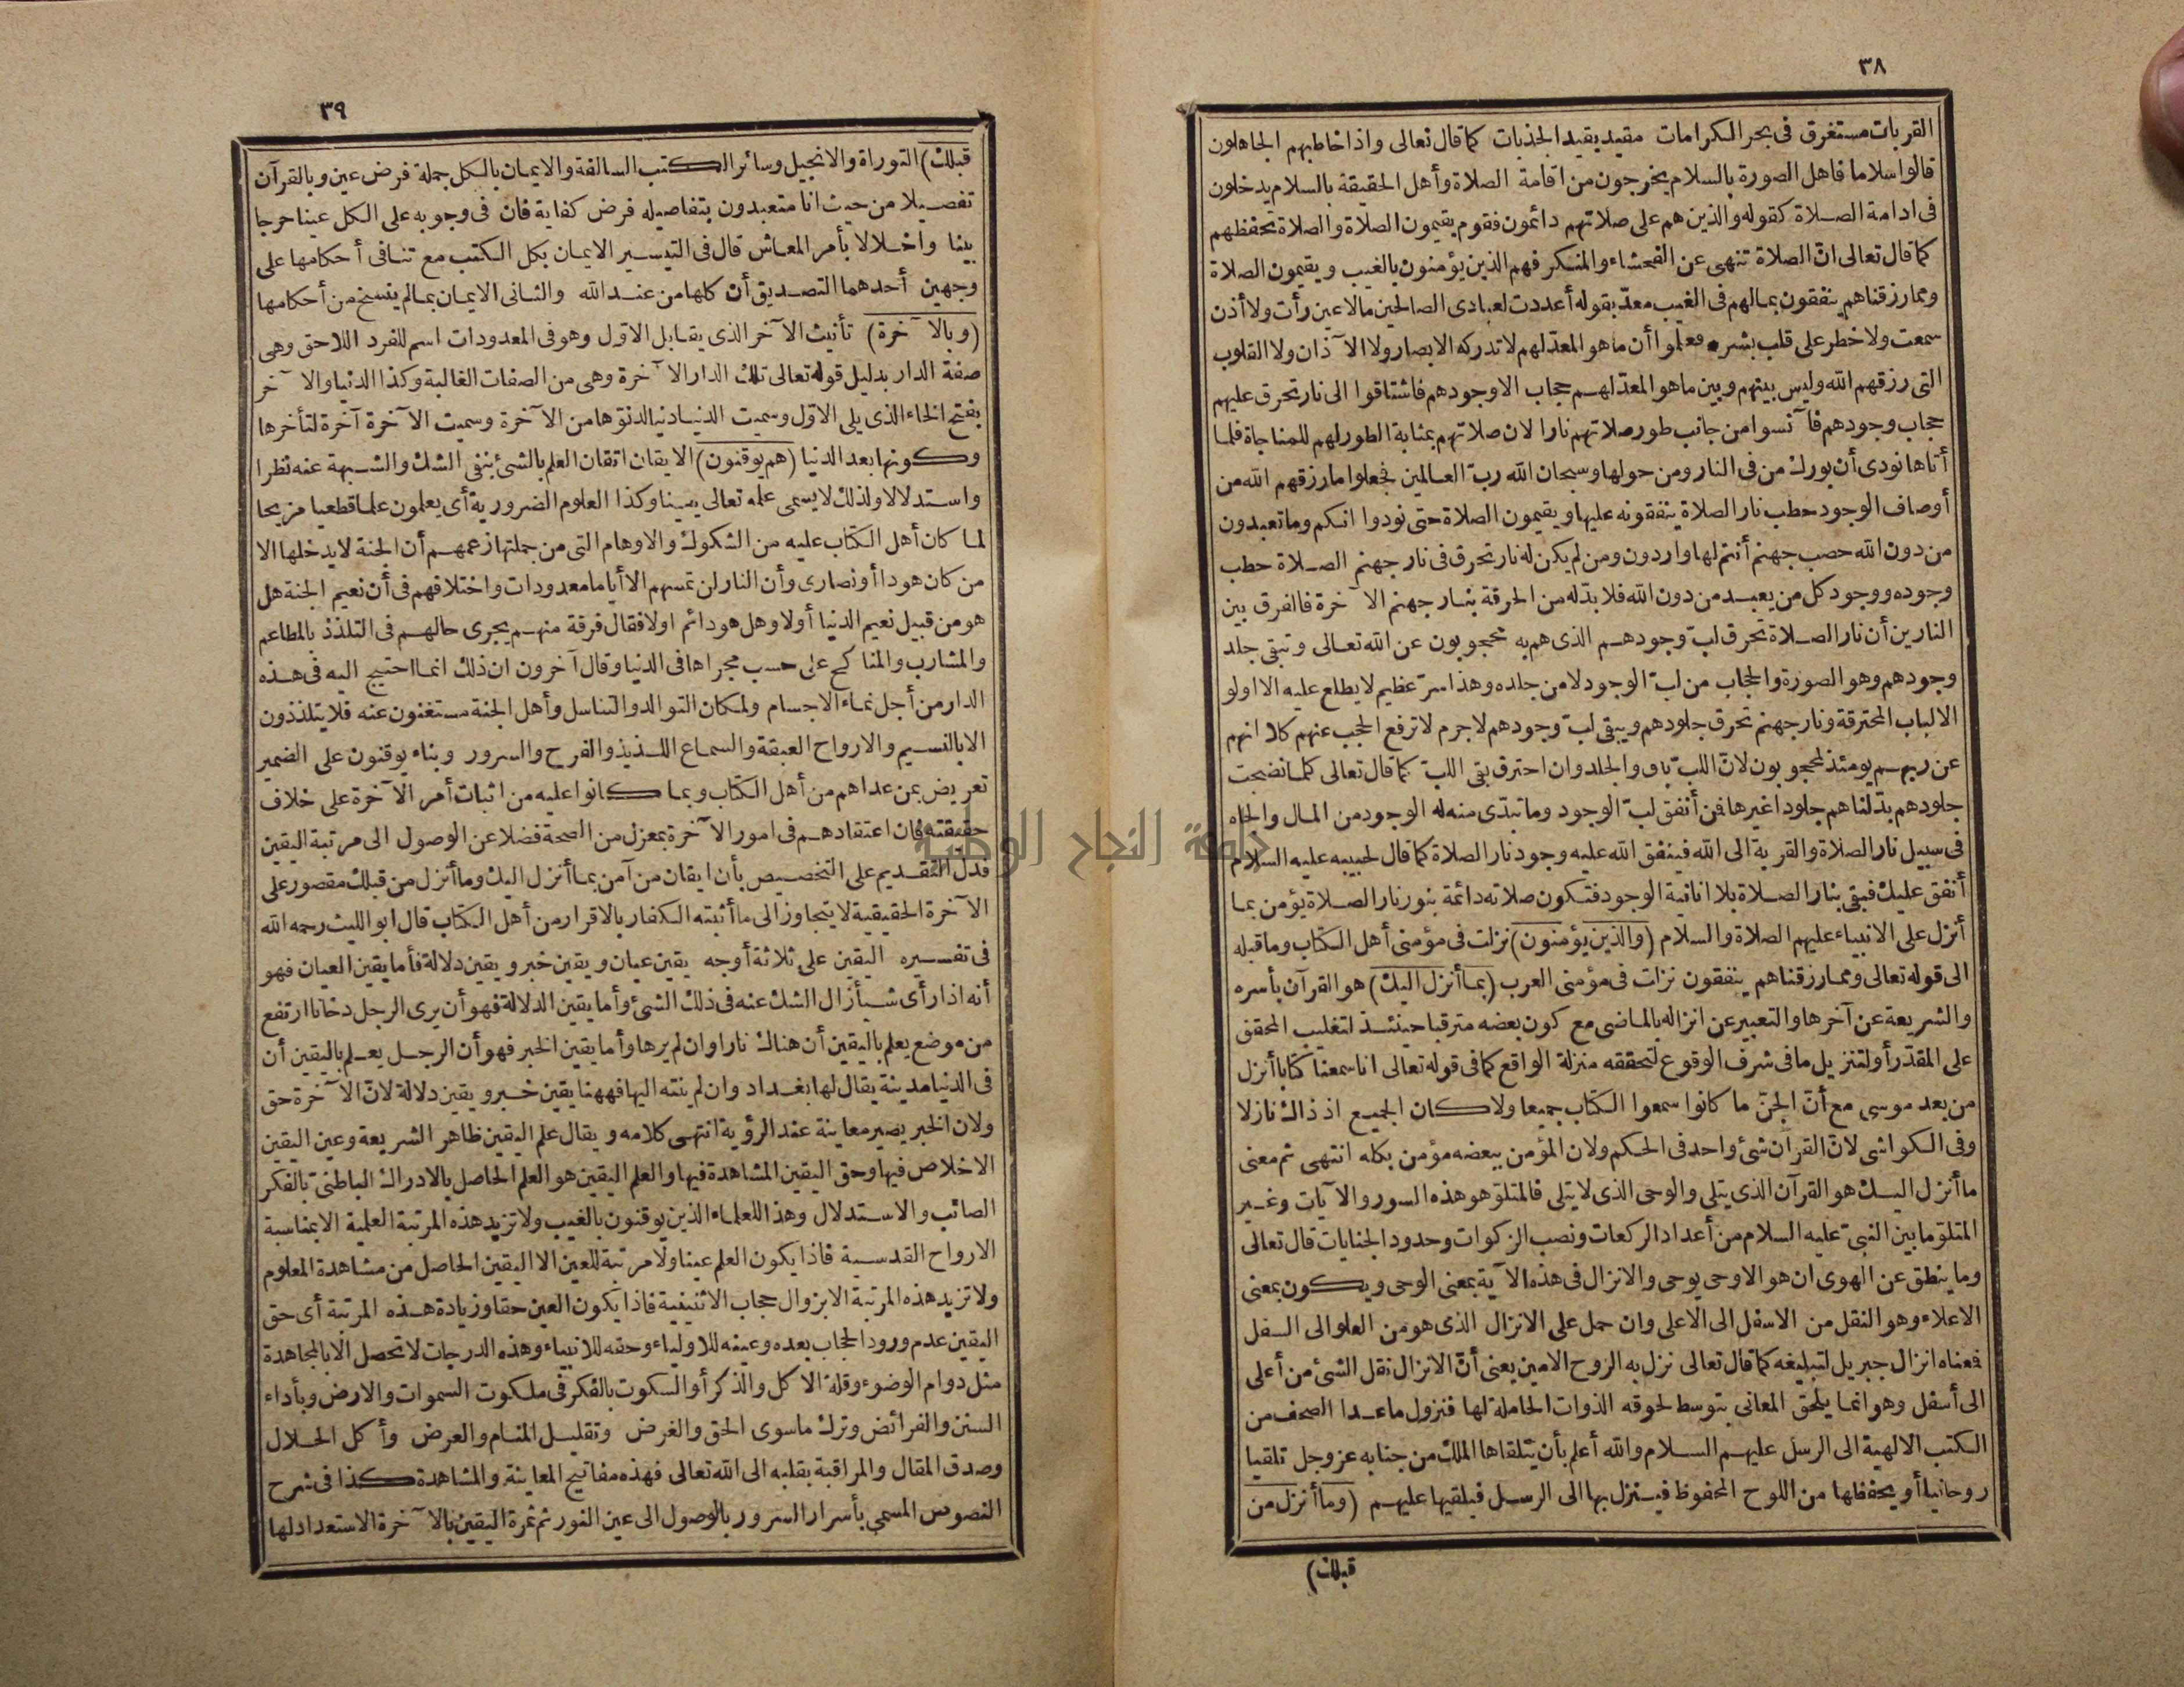 ٣٨
القربات مستغرق فى بحر الكرامات مقيد بقيد الجذبات كما قال تعالى واذا خاطبهم الجاهلون
قالوا سلاما فاهل الصورة بالسلام يخرجون من اقامة الصلاة وأهل الحقيقة بالسلام يدخلون
فى ادامة الصلاة كقوله والذين هم على صلاتهم دائمون فقوم يقيمون الصلاة والصلاة تحفظهم
كما قال تعالى انّ الصلاة تنهى عن الفحشاء والمنكر فهم الذين يؤمنون بالغيب ويقيمون الصلاة
ومما رزقناهم ينفقون بمالهم فى الغيب معدّ بقوله أعددت لعبادى الصالحين مالا عين رأت ولا أذن
سمعت ولا خطر على قلب بشر فعلموا أن ما هو المعدّ لهم لا تدركه الابصار ولا الآذان ولا القلوب
التى رزقهم الله وليس بينهم وبين ما هو المعدّ لهم حجاب الا وجودهم فاشتاقوا الى نار تحرق عليهم
حجاب وجودهم فآنسوا من جانب طور صلاتهم نارا لان صلاتهم بمثابة الطور لهم للمناجاة فلما
أتاها نودى أن بورك من فى النار ومن حولها وسبحان الله ربّ العالمين فجعلوا ما رزقهم الله من
أوصاف الوجود حطب نار الصلاة ينفقونه عليها ويقيمون الصلاة حتى نودوا انكم وما تعبدون
من دون الله حصب جهنم أنتم لها واردون ومن لم يكن له نار تحرق فى نار جهنم الصلاة حطب
وجوده ووجود كل من يعبد من دون الله فلا بدّ له من الحرقة بنار جهنم الآخرة فالفرق بين
النارين أن نار الصلاة تحرق لبّ وجودهم الذى هم به محجوبون عن الله تعالى وتبقى جلد
وجودهم وهو الصورة والحجاب من لبّ الوجود لا من جلده وهذا سرّ عظيم لا يطلع عليه الا اولو
الالباب المحترقة ونار جهنم تحرق جلودهم ويبقى لبّ وجودهم لا جرم لا ترفع الحجب عنهم كلا انهم
عن ربهم يومئذ لمحجوبون لانّ اللبّ باق والجلد وان احترق بقى اللبّ كما قال تعالى كلما نضجت
جلودهم بدّلناهم جلودا غيرها فمن أنفق لبّ الوجود وما تبدّى منه له الوجود من المال والجاه
فى سبيل نار الصلاة والقربة الى الله فينفق الله عليه وجود نار الصلاة كما قال لحبيبه عليه السلام
أنفق عليك فبقى بنار الصلاة بلا انانية الوجود فتكون صلاته دائمة بنور نار الصلاة يؤمن بما
أنزل على الانبياء عليهم الصلاة والسلام (والذين يؤمنون) نزلت فى مؤمنى أهل الكتاب وما قبله
الى قوله تعالى ومما رزقناهم ينفقون نزلت فى مؤمنى العرب (بما أنزل اليك) هو القرآن بأسره
والشريعة عن آخرها والتعبير عن انزاله بالماضى مع كون بعضه مترقبا حينئذ لتغليب المحقق
على المقدّر أو لتنزيل ما فى شرف الوقوع لتحققه منزلة الواقع كما فى قوله تعالى انا سمعنا كتابا أنزل
من بعد موسى مع أنّ الجنّ ما كانوا سمعوا الكتاب جميعا ولا كان الجميع اذ ذاك نازلا
وفى الكواشى لانّ القرآن شئ واحد فى الحكم ولان المؤمن ببعضه مؤمن بكله انتهى ثم معنى
ما أنزل اليك هو القرآن الذى يتلى والوحى الذى لا يتلى فالمتلوّ هو هذه السور والآيات وغير
المتلوّ ما بين النبىّ عليه السلام من أعداد الركعات ونصب الزكوات وحدود الجنايات قال تعالى
وما ينطق عن الهوى ان هو الا وحى يوحى والانزال فى هذه الآية بمعنى الوحى ويكون بمعنى
الاعلاء وهو النقل من الاسفل الى الاعلى وان حمل على الانزال الذى هو من العلو الى السفل
فمعناه انزال جبريل لتبليغه كما قال تعالى نزل به الروح الامين يعنى أنّ الانزال نقل الشئ من أعلى
الى أسفل وهو انما يلحق المعانى بتوسط لحوقه الذوات الحاملة لها فنزول ما عدا الصحف من
الكتب الالهية الى الرسل عليهم السلام والله أعلم بأن يتلقاها الملك من جنابه عز وجل تلقيا
روحانيا أو يحفظها من اللوح المحفوظ فينزل بها الى الرسل فيلقيها عليهم (وما أنزل من
قبلك)
٣٩
قبلك) التوراة والانجيل وسائر الكتب السالفة والايمان بالكل جملة فرض عين وبالقرآن
تفصيلا من حيث انا متعبدون بتفاصيله فرض كفاية فان فى وجوبه على الكل عينا حرجا
بينا واخلالا بأمر المعاش قال فى التيسير الايمان بكل الكتب مع تنافى أحكامها على
وجهين أحدهما التصديق أن كلها من عند الله والثانى الايمان بما لم ينسخ من أحكامها
(وبالآخرة) تأنيث الآخر الذى يقابل الاوّل وهو فى المعدودات اسم للفرد اللاحق وهى
صفة الدار بدليل قوله تعالى تلك الدار الآخرة وهى من الصفات الغالبة وكذا الدنيا والآخر
بفتح الخاء الذى يلى الاوّل وسميت الدنيا دنيا لدنوّها من الآخرة وسميت الآخرة آخرة لتأخرها
وكونها بعد الدنيا (هم يوقنون) الايقان اتقان العلم بالشئ بنفى الشك والشبهة عنه نظرا
واستدلالا ولذلك لا يسمى علمه تعالى يقينا وكذا العلوم الضرورية أى يعلمون علما قطعيا مزيحا
لما كان أهل الكتاب عليه من الشكوك والاوهام التى من جملتها زعمهم أن الجنة لا يدخلها الا
من كان هودا أو نصارى وأن النار لن تمسهم الا أياما معدودات واختلافهم فى أن نعيم الجنة هل
هو من قبيل نعيم الدنيا أو لا وهل هو دائم اولا فقال فرقة منهم يجرى حالهم فى التلذذ بالمطاعم
والمشارب والمناكح على حسب مجراها فى الدنيا وقال آخرون ان ذلك انما احتيج اليه فى هذه
الدار من أجل نماء الاجسام ولمكان التوالد والتناسل وأهل الجنة مستغنون عنه فلا يتلذذون
الا بالنسيم والارواح العبقة والسماع اللذيذ والفرح والسرور وبناء يوقنون على الضمير
تعريض بمن عداهم من أهل الكتاب وبما كانوا عليه من اثبات أمر الآخرة على خلاف
حقيقته فان اعتقادهم فى امور الآخرة بمعزل من الصحة فضلا عن الوصول الى مرتبة اليقين
فدل التقديم على التخصيص بأن ايقان من آمن بما أنزل اليك وما أنزل من قبلك مقصور على
الآخرة الحقيقية لا يتجاوز الى ما أثبته الكفار بالاقرار من أهل الكتاب قال ابو الليث رحمه الله
فى تفسيره اليقين على ثلاثة أوجه يقين عيان ويقين خبر ويقين دلالة فأما يقين العيان فهو
أنه اذا رأى شيأ زال الشك عنه فى ذلك الشئ وأما يقين الدلالة فهو أن يرى الرجل دخانا ارتفع
من موضع يعلم باليقين أن هناك نارا وان لم يرها وأما يقين الخبر فهو أن الرجل يعلم باليقين أن
فى الدنيا مدينة يقال لها بغداد وان لم ينته اليها فههنا يقين خبر ويقين دلالة لانّ الآخرة حق
ولان الخبر يصير معاينة عند الرؤية انتهى كلامه ويقال علم اليقين ظاهر الشريعة وعين اليقين
الاخلاص فيها وحق اليقين المشاهدة فيها والعلم اليقين هو العلم الحاصل بالادراك الباطنىّ بالفكر
الصائب والاستدلال وهذا للعلماء الذين يوقنون بالغيب ولا تزيد هذه المرتبة العلمية الا بمناسبة
الارواح القدسية فاذا يكون العلم عينا ولا مرتبة للعين الا اليقين الحاصل من مشاهدة المعلوم
ولا تزيد هذه المرتبة الا بزوال حجاب الاثنينية فاذا يكون العين حقا وزيادة هذه المرتبة أى حق
اليقين عدم ورود الحجاب بعده وعينه للاولياء وحقه للانبياء وهذه الدرجات لا تحصل الا بالمجاهدة
مثل دوام الوضوء وقلة الاكل والذكر أو السكوت بالفكر فى ملكوت السموات والارض وبأداء
السنن والفرائض وترك ما سوى الحق والغرض وتقليل المنام والعرض وأكل الحلال
وصدق المقال والمراقبة بقلبه الى الله تعالى فهذه مفاتيح المعاينة والمشاهدة كذا فى شرح
النصوص المسمى بأسرار السرور بالوصول الى عين النور ثم ثمرة اليقين بالآخرة الاستعداد لها
جامعة النجاح الوطنية